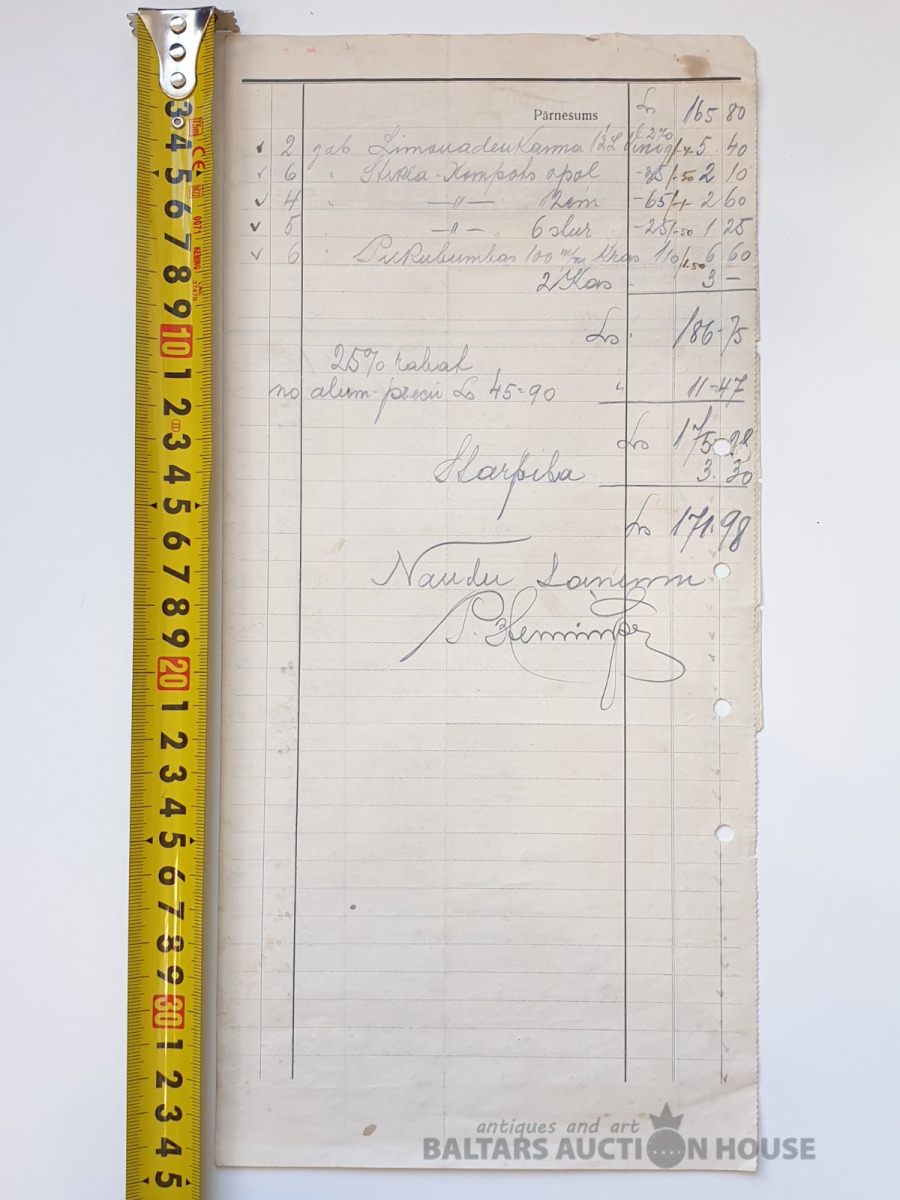 Pārnesums Ls 165 80
✓ 2 gab Limonadenkanna 1/2 L 2.70 5. 40
✓ 6 " Stikla-Kompots opal -35/-50 2 10
✓ 4 " —"— 12cm -65/-1- 2 60
✓ 5 —"— 6 stur -25/-50 1 25
✓ 6 " 100 m/m Kras 110/1.50 6 60
2 Kas 3 —
Ls. 186-75
25% rabat
no alum-precu Ls 45=90 " 11-47
Ls 175 28
Starpiba 3. 30
Ls 171.98
Naudu
3 4 5 6 7 8 9 10 1 2 3 4 5 6 7 8 9 20 1 2 3 4 5 6 7 8 9 30 1 2 3 4 5
antiques and art
BALTARS AUCTION HOUSE